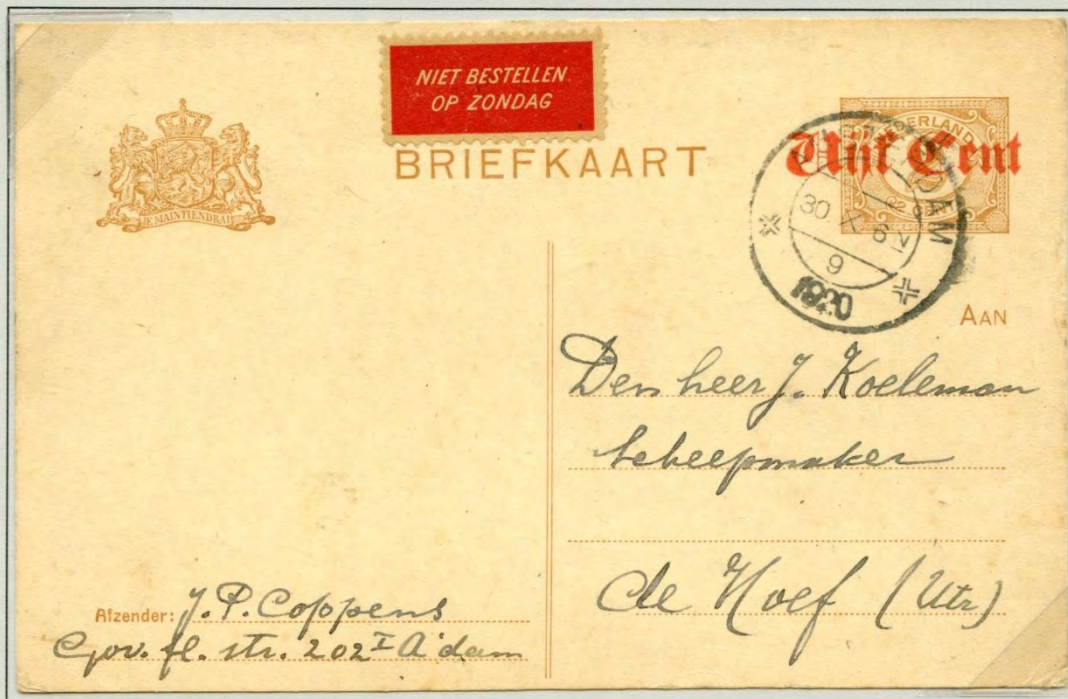 NIET BESTELLEN
OP ZONDAG
BRIEFKAART
JE MAINTIENDRAI
NEDERLAND
Vijf Cent
AMSTERDAM
30 X 6-7N
9
1920
AAN
Den heer J. Koeleman
Scheepmaker
de Hoef (Utr)
Afzender: J. P. Coppens
Gov. fl. str. 202 I A'dam